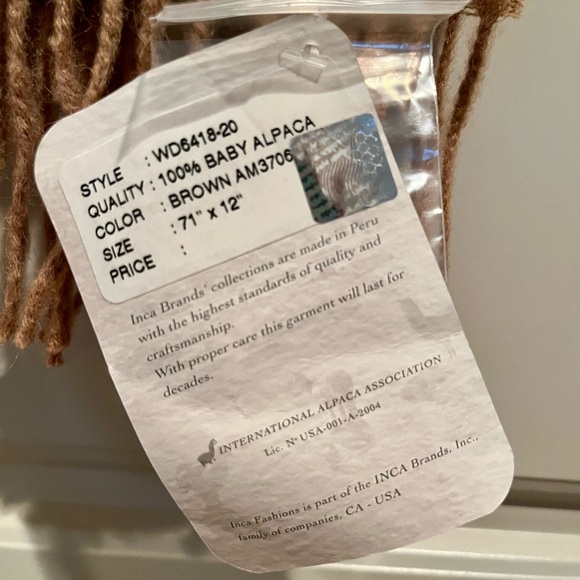 STYLE : WD6418-20
QUALITY : 100% BABY ALPACA
COLOR : BROWN AM3706
SIZE : 71" x 12"
PRICE :
Inca Brands' collections are made in Peru
with the highest standards of quality and
craftsmanship.
With proper care this garment will last for
decades.
INTERNATIONAL ALPACA ASSOCIATION
Lic. Nº USA-001-A-2004
Inca Fashions is part of the INCA Brands, Inc.,
family of companies, CA - USA